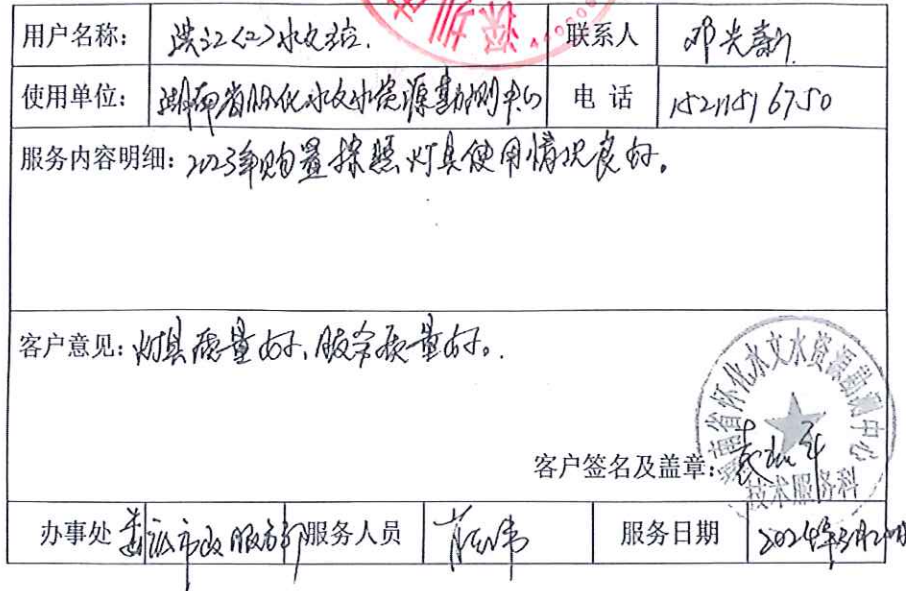 深圳
用户名称: 洪江<二>水文站. 联系人
使用单位: 湖南省怀化水文水资源勘测中心 电话 15211516750
服务内容明细: 2023年购置探照灯具使用情况良好。
客户意见: 灯具质量好、服务质量好。
湖南省怀化水文水资源勘测中心
技术服务科
客户签名及盖章:
办事处 市政服务部 服务人员 服务日期 2024年3月20日